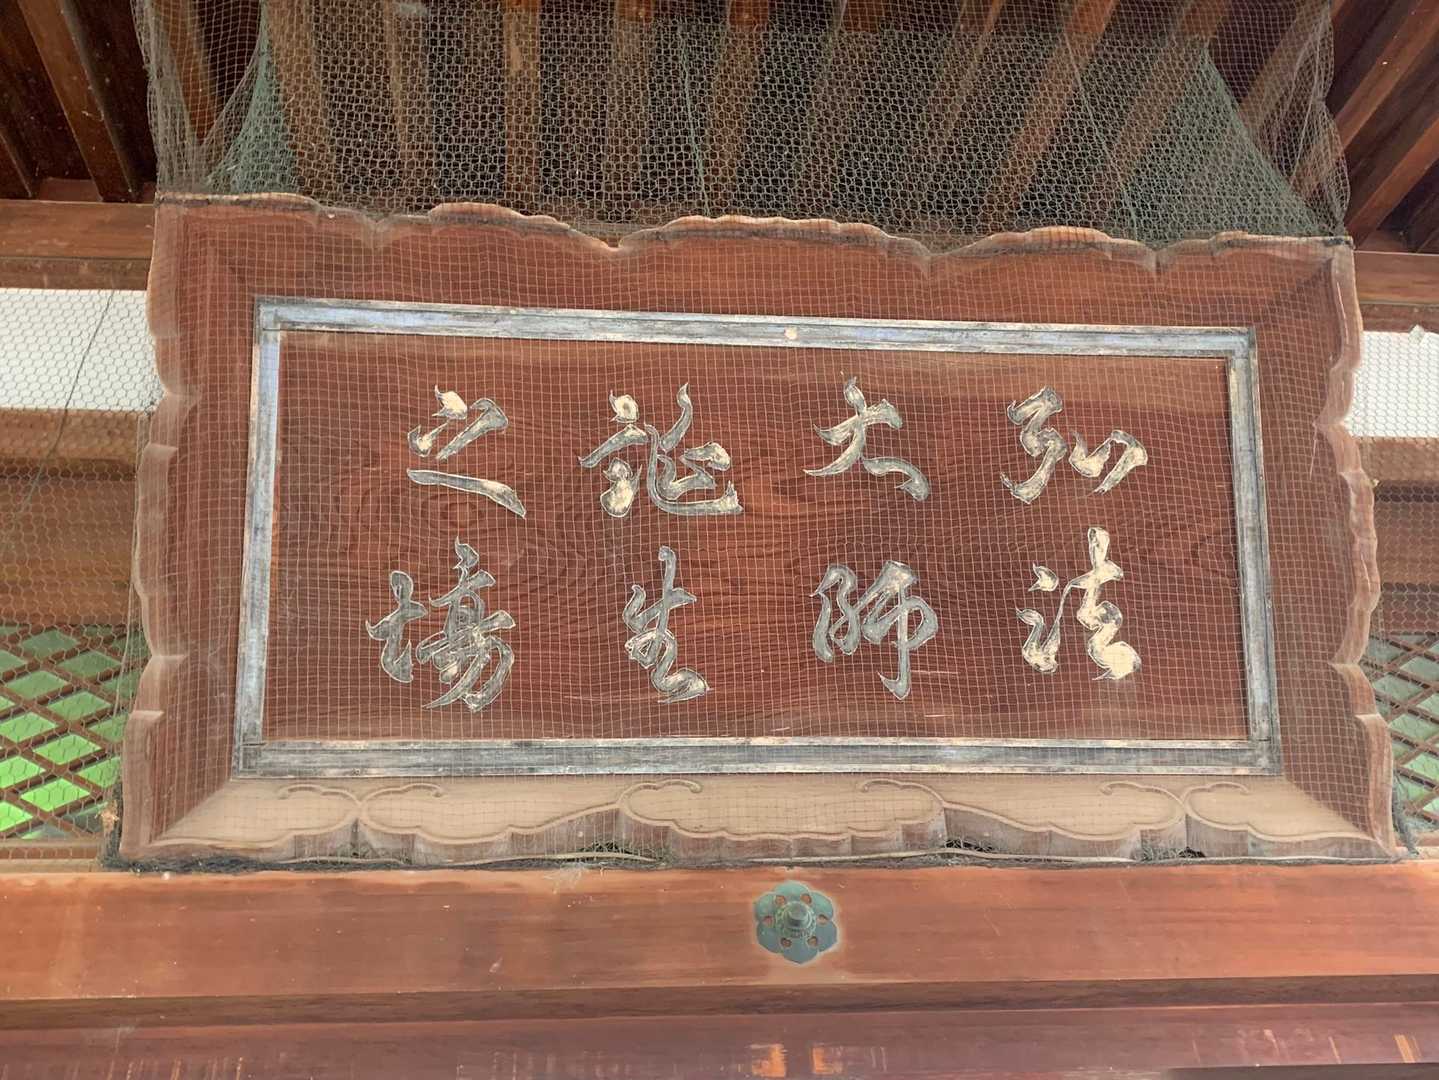 弘法
大師
誕生
之場